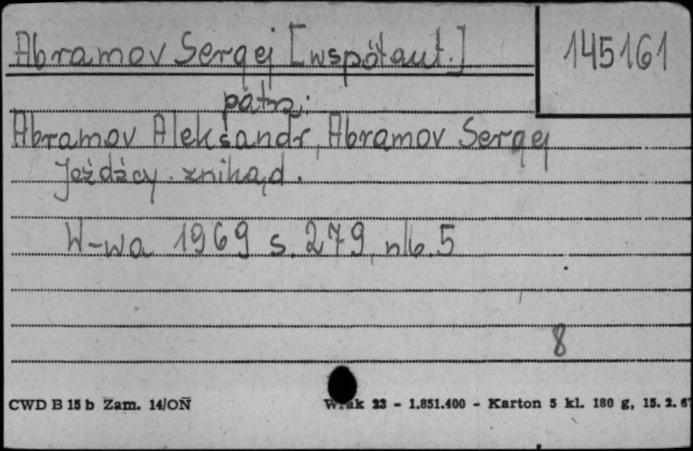 Abramov Sergej [współaut.]
145161
patrz:
Abramov Aleksandr, Abramov Sergej
Jeźdźcy znikąd.
W-wa 1969 s. 279, nlb. 5
8
CWD B 15 b Zam. 14/ON
23 - 1.851.400 - Karton 5 kl. 180 g, 15. 2. 67